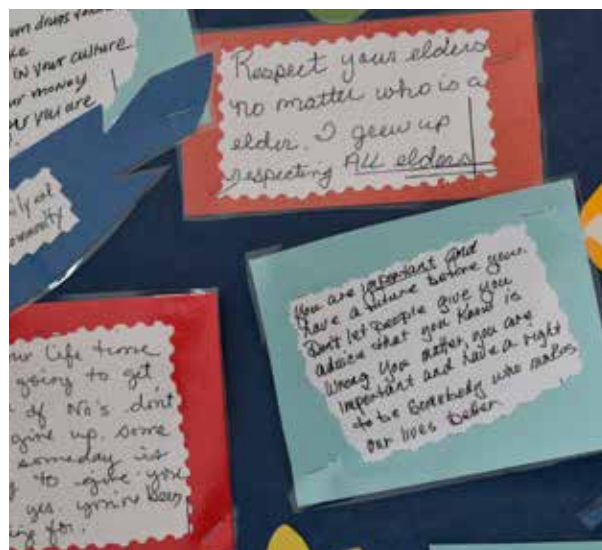 drugs
in your culture
money
you are
Respect your elders
no matter who is a
elder. I grew up
respecting ALL elders
You are important and
have a future before you.
Don't let people give you
advice that you know is
wrong you matter, you are
important and have a right
to be somebody who makes
our lives better
life time
going to get
of No's don't
give up. some
someday is
to give you
yes. you've been
for.